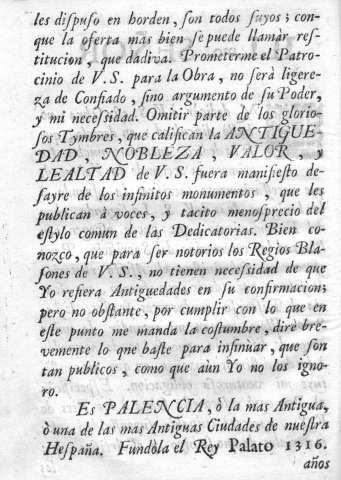 les dispuso en horden, son todos suyos; con-
que la oferta mas bien se puede llamar res-
titucion, que dadiva. Prometerme el Patro-
cinio de V.S. para la Obra, no serà ligere-
za de Confiado, sino argumento de su Poder,
y mi necessidad. Omitir parte de los glorio-
sos Tymbres, que califican la ANTIGUE-
DAD, NOBLEZA, VALOR, y
LEALTAD de V.S. fuera manifiesto de-
sayre de los infinitos monumentos, que les
publican à voces, y tacito menosprecio del
estylo comun de las Dedicatorias. Bien co-
nozco, que para ser notorios los Regios Bla-
sones de V.S., no tienen necessidad de que
Yo refiera Antiguedades en su confirmacion;
pero no obstante, por cumplir con lo que en
este punto me manda la costumbre, dirè bre-
vemente lo que baste para insinuar, que son
tan publicos, como que aùn Yo no los igno-
ro.
Es PALENCIA, ò la mas Antigua,
ò una de las mas Antiguas Ciudades de nuestra
Hespaña. Fundòla el Rey Palato 1316.
años